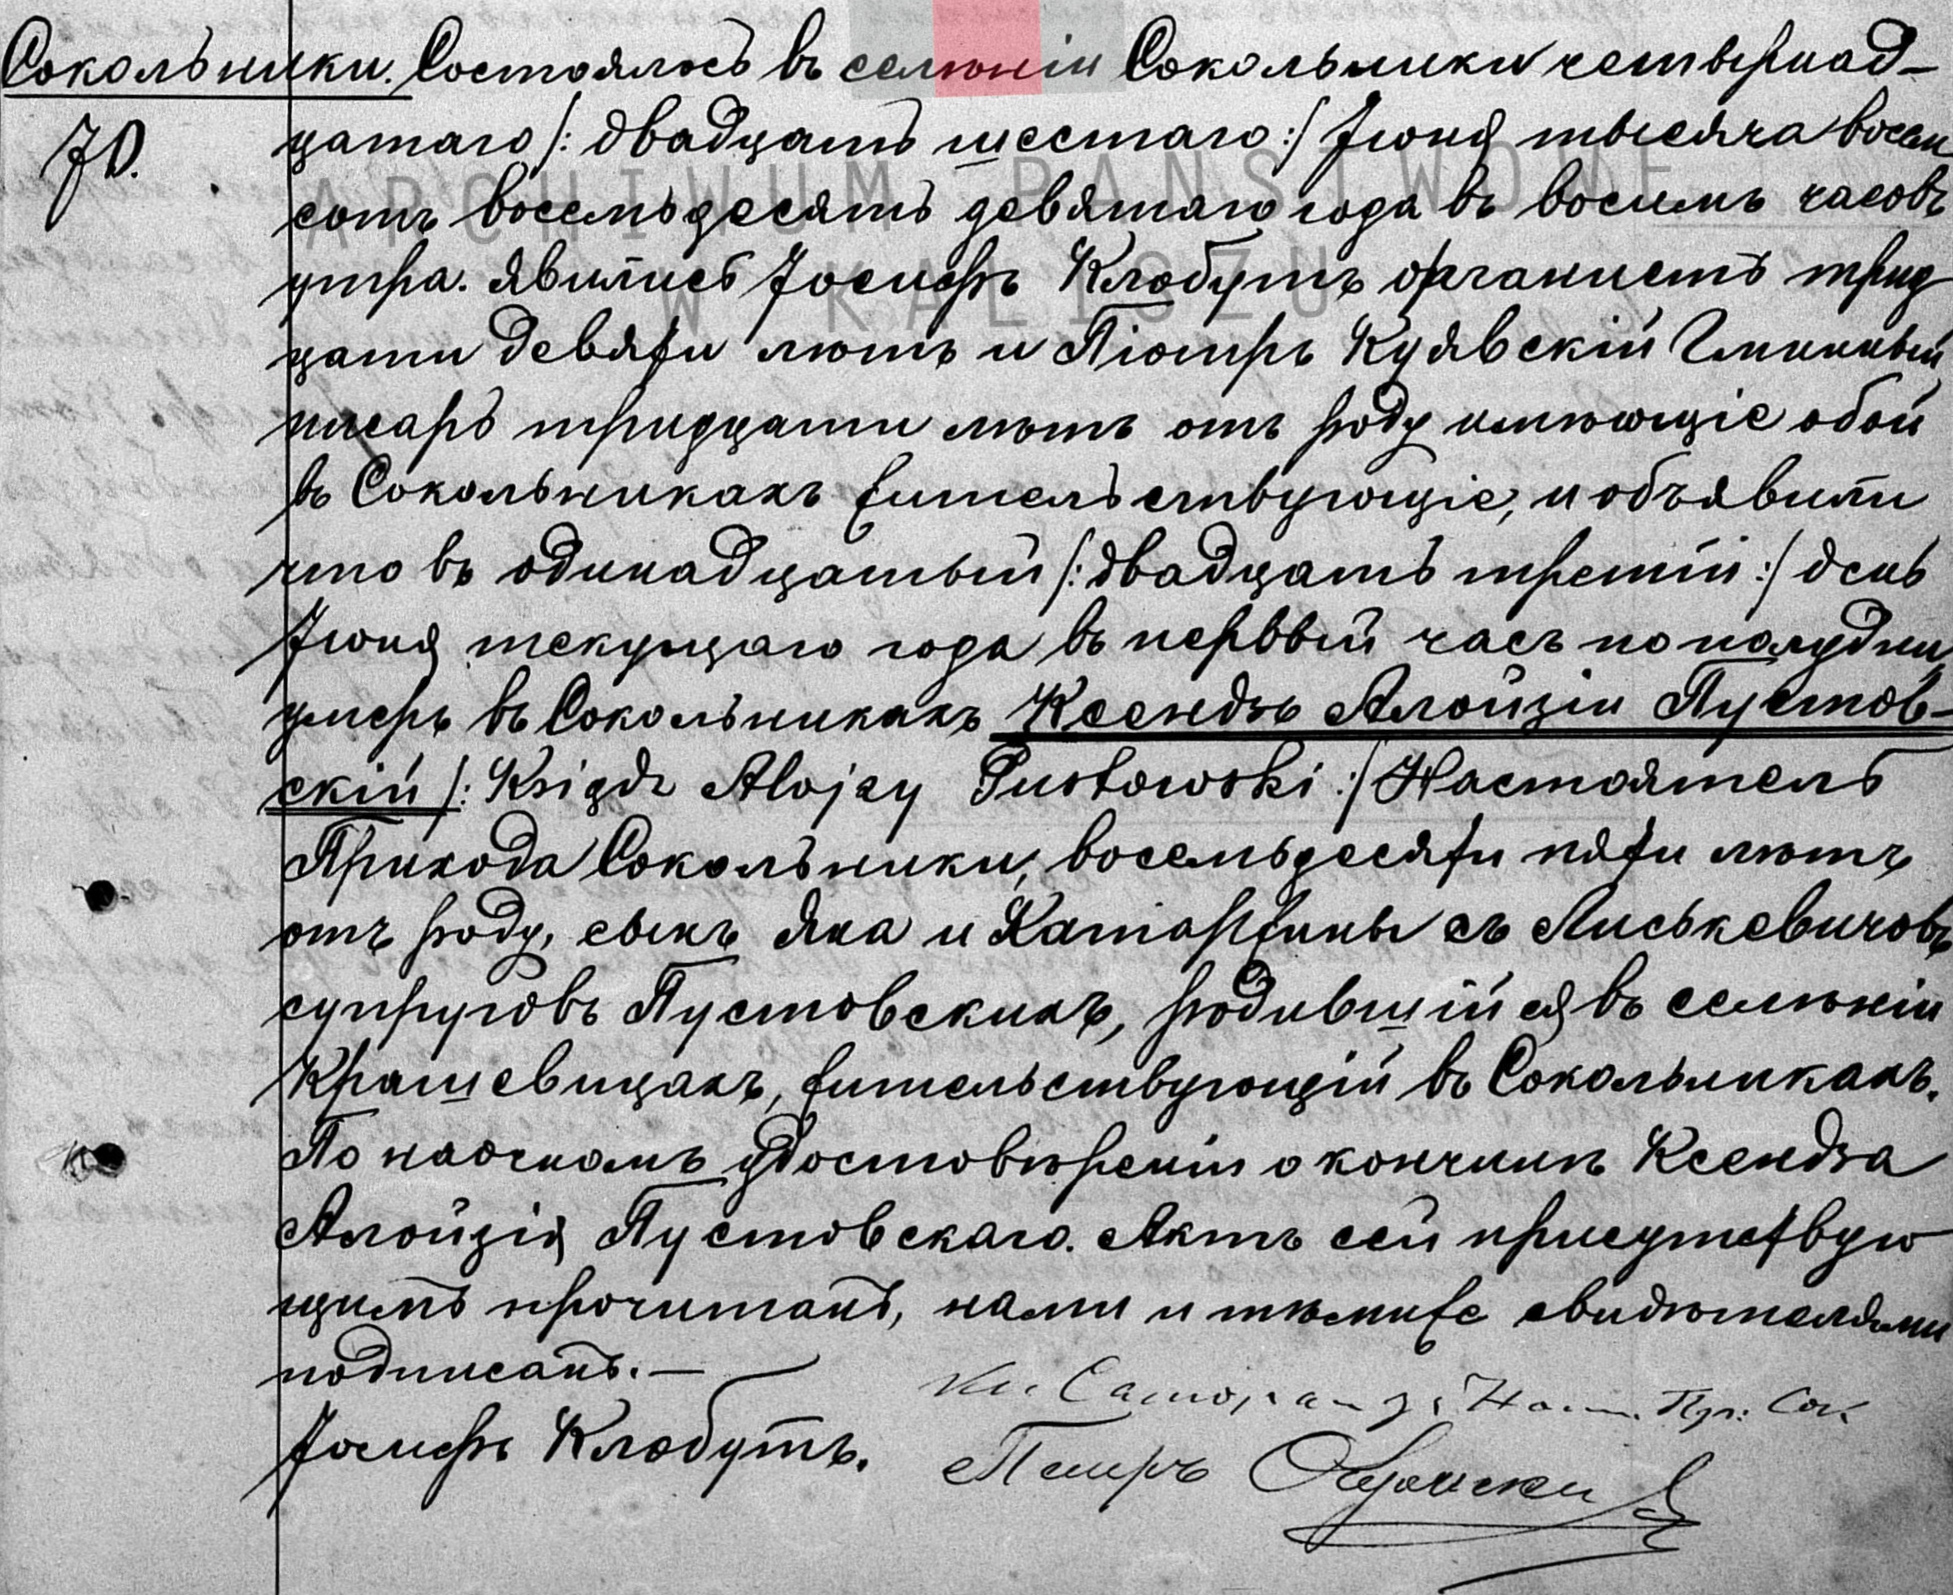 Сокольники. Состоялось въ селеніи Сокольники четырнад-
70. цатаго /: двадцать шестаго :/ Іюня тысяча восем
сотъ восемьдесятъ девятаго года въ восемь часовъ
утра. Явились Іосифъ Клобутъ органистъ трид
цати девяти лѣтъ и Піотръ Куявскій Гминный
писарь тридцати лѣтъ отъ роду имѣющіе обои
въ Сокольникахъ жительствующіе, и объявили
что въ одинадцатый /: двадцать третій :/ день
Іюня текущаго года въ первый часъ по полудни
умеръ въ Сокольникахъ Ксендзъ Алойзій Пустов-
скій /: Ksiądz Alojzy Pustowski :/ Настоятель
Прихода Сокольники, восемьдесяти пяти лѣтъ
отъ роду, сынъ Яна и Катаржины съ Лиськевичовъ
супруговъ Пустовскихъ, родившійся въ селѣніи
Крашевицахъ, жительствующій въ Сокольникахъ.
По наочномъ удостовѣреніи о кончинѣ Ксендза
Алойзія Пустовскаго. Актъ сей присутствую
щимъ прочитанъ, нами и тѣмиже свидѣтелями
подписанъ.—
Нас. Пр: Сок.
Іосифъ Клобутъ. Петръ
ARCHIWUM PAŃSTWOWE
W KALISZU